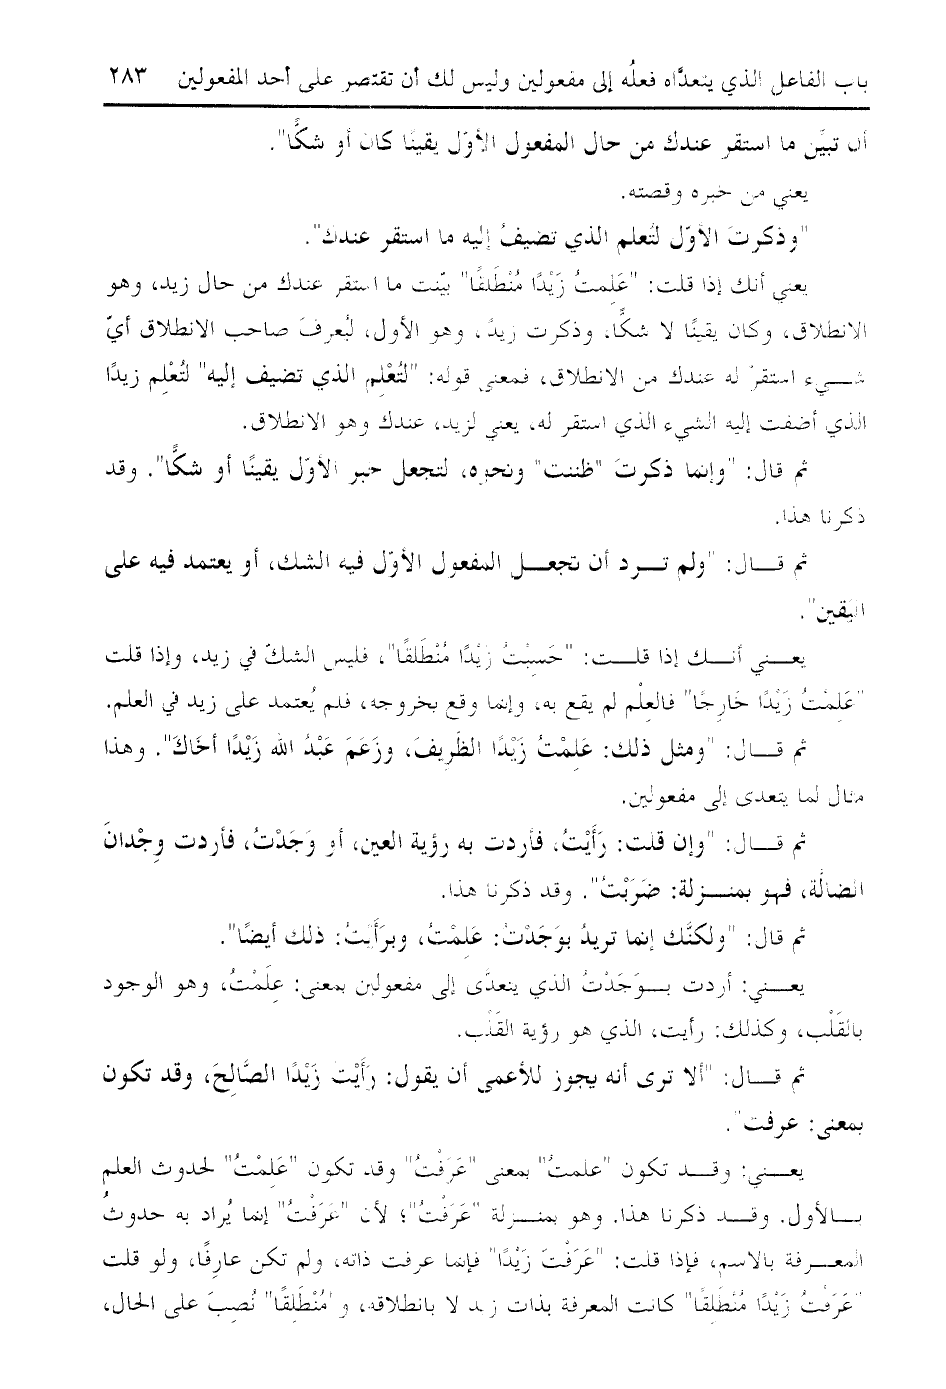 باب الفاعل الذي يتعدَّاه فعلُه إلى مفعولين وليس لك أن تقتصر على أحد المفعولين ٢٨٣
أن تبيِّن ما استقر عندك من حال المفعول الأوّل يقينًا كان أو شكًّا".
يعني من خبره وقصته.
"وذكرتَ الأوّل لتُعلم الذي تضيفُ إليه ما استقر عندك".
يعني أنك إذا قلت: "عَلِمتُ زَيْدًا مُنْطَلَقًا" بيّنت ما استقر عندك من حال زيد، وهو
الانطلاق، وكان يقينًا لا شكًّا، وذكرت زيدًا، وهو الأول، ليُعرفَ صاحب الانطلاق أيّ
شـيء استقرّ له عندك من الانطلاق، فمعنى قوله: "لتُعْلِم الذي تضيف إليه" لتُعْلِم زيدًا
الذي أضفت إليه الشيء الذي استقر له، يعني لزيد، عندك وهو الانطلاق.
ثم قال: "وإنما ذكرتَ "ظننت" ونحوه، لتجعل خبر الأوّل يقينًا أو شكًّا". وقد
ذكرنا هذا.
ثم قـال: "ولم تـرد أن تجعـل المفعول الأوّل فيه الشك، أو يعتمد فيه على
اليقين".
يعـني أنـك إذا قلـت: "حَسِبْتُ زَيْدًا مُنْطَلَقًا"، فليس الشكّ في زيد، وإذا قلت
"عَلِمْتُ زَيْدًا خارِجًا" فالعِلْم لم يقع به، وإنما وقع بخروجه، فلم يُعتمد على زيد في العلم.
ثم قـال: "ومثل ذلك: عَلِمْتُ زَيْدًا الظَرِيفَ، وزَعَمَ عَبْدُ الله زَيْدًا أخَاكَ". وهذا
مثال لما يتعدى إلى مفعولين.
ثم قـال: "وإن قلت: رَأَيْتُ، فأردت به رؤية العين، أو وَجَدْتُ، فأردت وِجْدانَ
الضالَّة، فهو بمنـزلة: ضَرَبْتُ". وقد ذكرنا هذا.
ثم قال: "ولكنَّك إنما تريدُ بوَجَدْتُ: عَلِمْتُ، وبرَأَيتُ: ذلك أيضًا".
يعـني: أردت بـوَجَدْتُ الذي يتعدَّى إلى مفعولين بمعنى: عَلِمْتُ، وهو الوجود
بالقَلْب، وكذلك: رأيت، الذي هو رؤية القَلْب.
ثم قـال: "ألا ترى أنه يجوز للأعمى أن يقول: رَأَيْتُ زَيْدًا الصَّالِحَ، وقد تكون
بمعنى: عرفت".
يعـني: وقـد تكون "علمتُ" بمعنى "عَرَفْتُ" وقد تكون "عَلِمْتُ" لحدوث العلم
بـالأول. وقـد ذكرنا هذا. وهو بمنـزلة "عَرَفْتُ"؛ لأن "عَرَفْتُ" إنما يُراد به حدوثُ
المعـرفة بالاسم، فإذا قلت: "عَرَفْتَ زَيْدًا" فإنما عرفت ذاته، ولم تكن عارفًا، ولو قلت
"عَرَفْتُ زَيْدًا مُنْطَلِقًا" كانت المعرفة بذات زيد لا بانطلاقه، و"مُنْطَلِقًا" نُصِبَ على الحال،